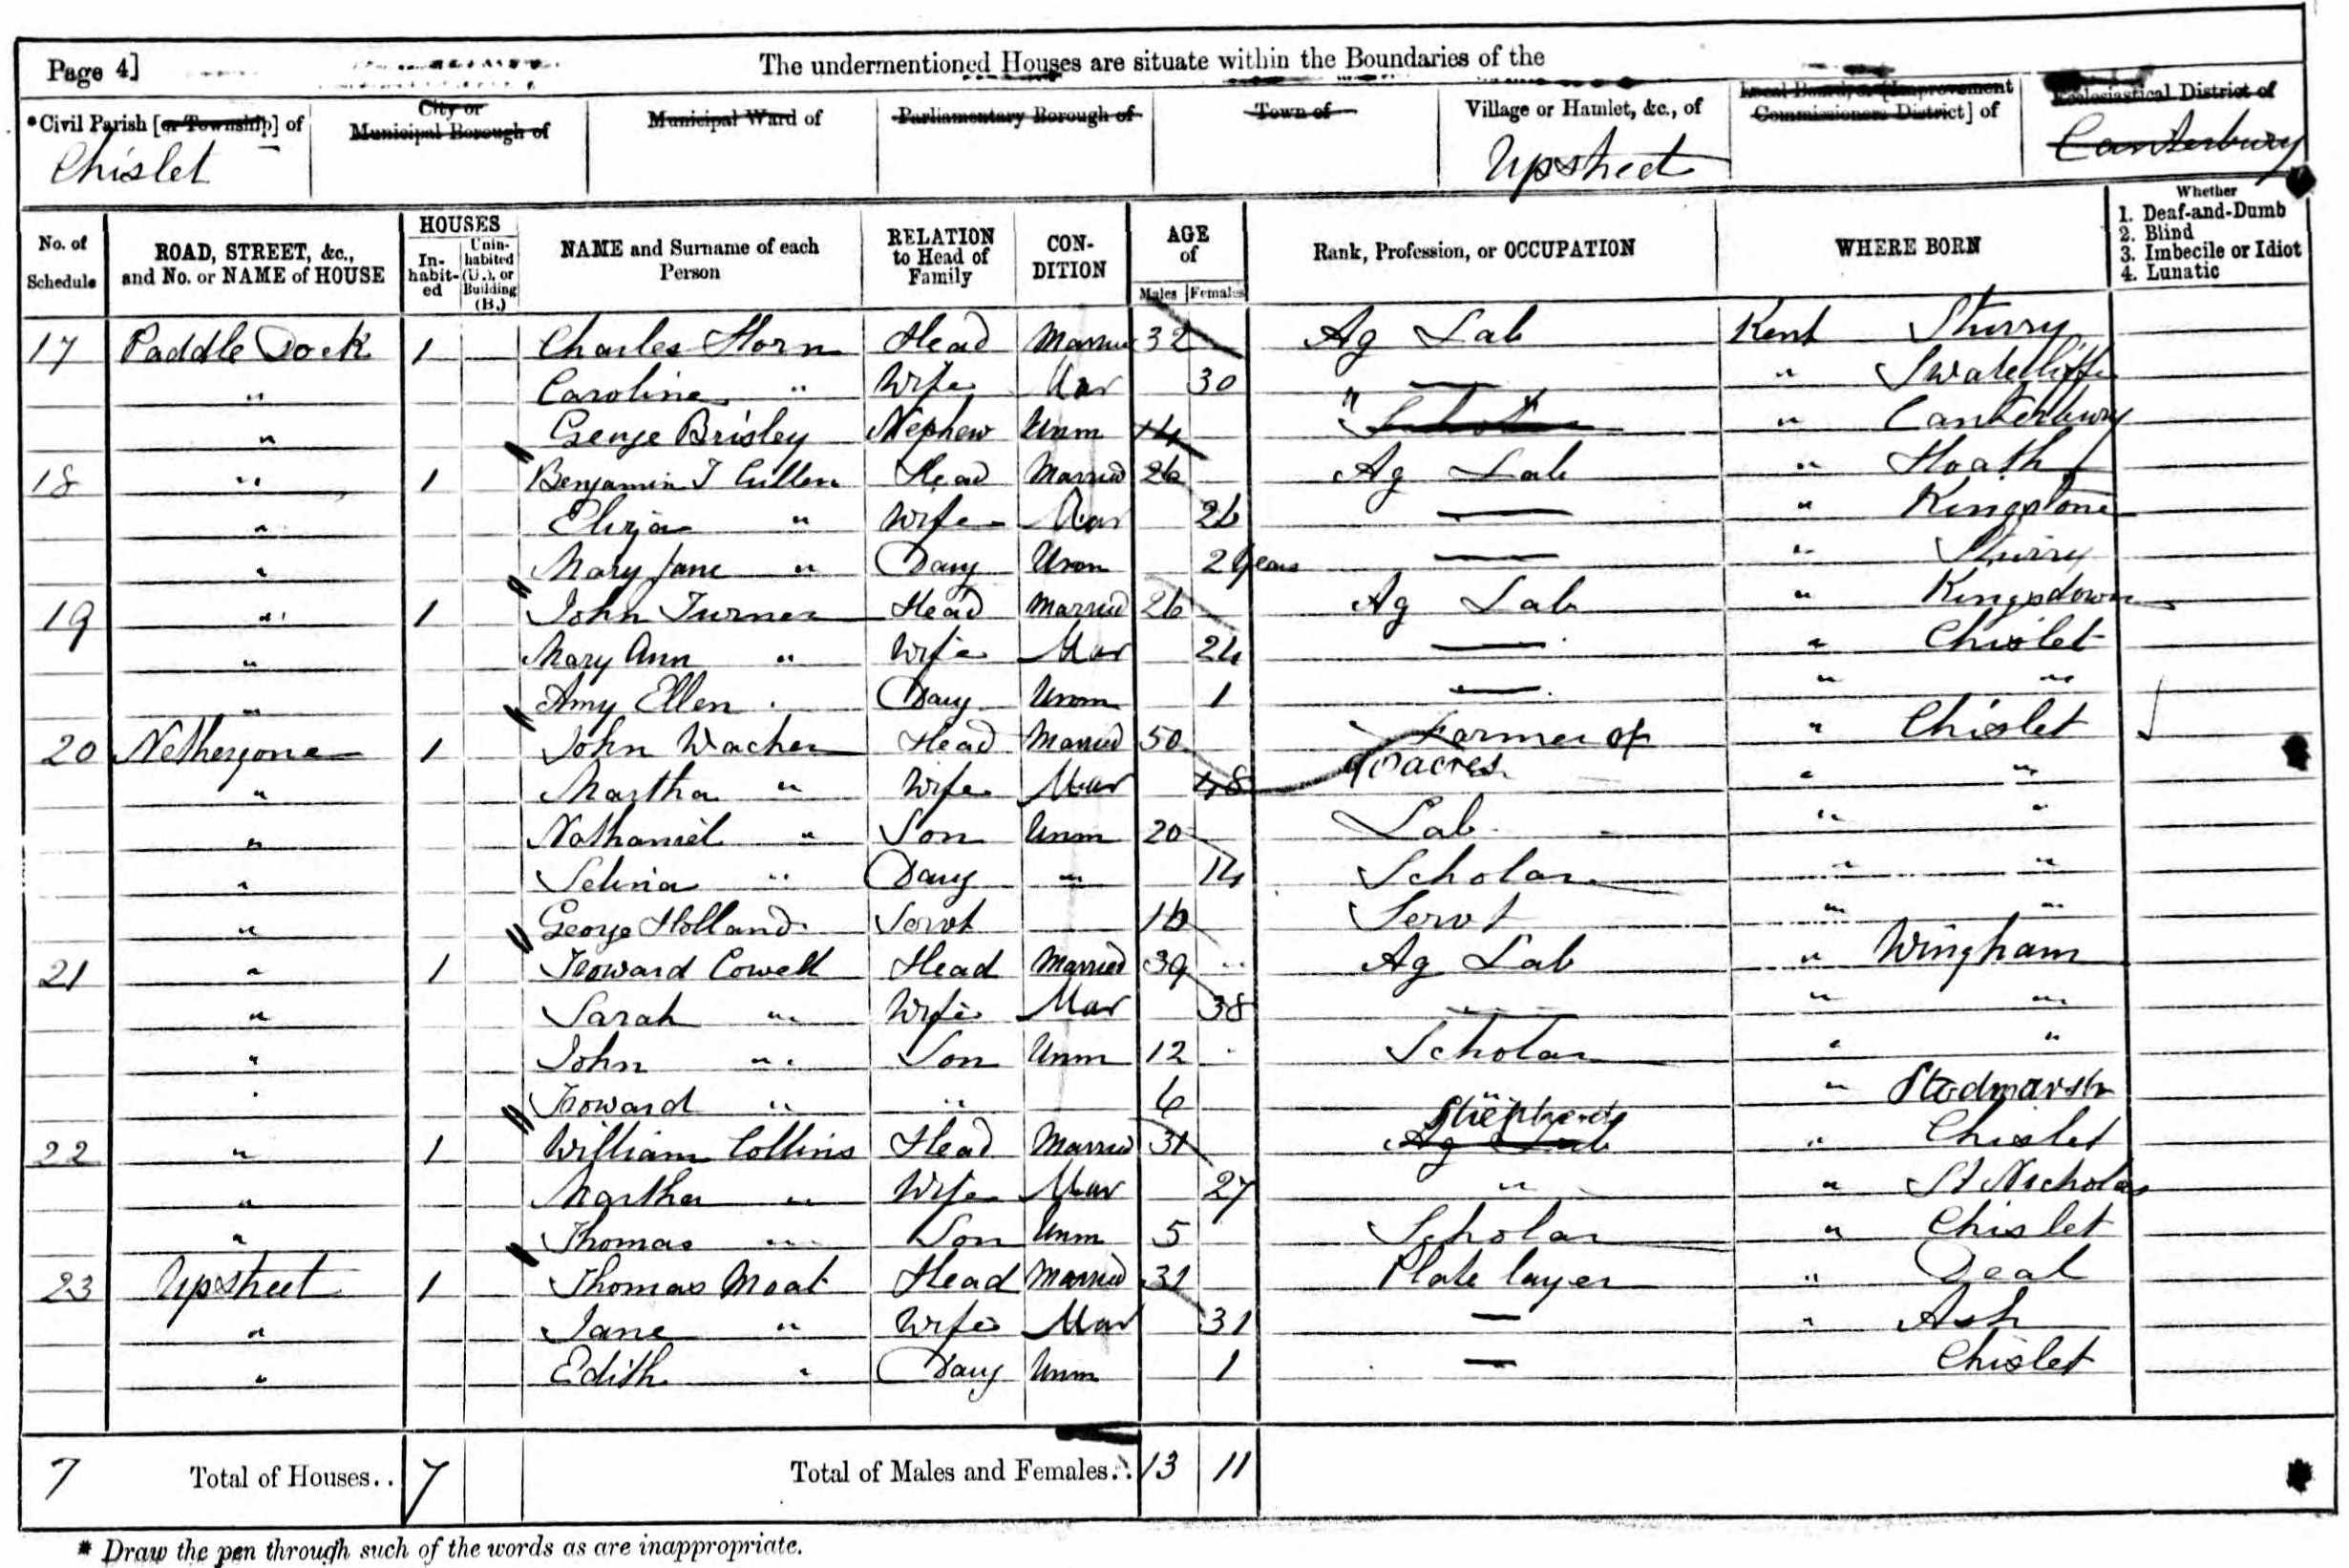 Page 4]
The undermentioned Houses are situate within the Boundaries of the
*Civil Parish [or Township] of
City or Municipal Borough of
Municipal Ward of
Parliamentary Borough of
Town of
Village or Hamlet, &c., of
Local Board, or [Improvement Commissioners District] of
Ecclesiastical District of
Chislet
Upstreet
Canterbury
No. of Schedule
ROAD, STREET, &c., and No. or NAME of HOUSE
HOUSES
In-habit-ed
Unin-habited (U.), or Building (B.)
NAME and Surname of each Person
RELATION to Head of Family
CON-DITION
AGE of
Males Females
Rank, Profession, or OCCUPATION
WHERE BORN
Whether
1. Deaf-and-Dumb
2. Blind
3. Imbecile or Idiot
4. Lunatic
17 Paddle Dock 1 Charles Horn Head Married 32 Ag Lab Kent Sturry
" Caroline " Wife Mar 30 " — " Swalecliffe
" George Brisley Nephew Unm 14 " Scholar " Canterbury
18 " 1 Benjamin T Cullen Head Married 26 Ag Lab " Hoath
" Eliza " Wife Mar 26 — " Kingstone
" Mary Jane " Daug Unm 2 Years — " Sturry
19 " 1 John Turner Head Married 26 Ag Lab " Kingsdown
" Mary Ann " Wife Mar 24 — " Chislet
" Amy Ellen Daug Unm 1 — " "
20 Nethergone 1 John Wacher Head Married 50 Farmer of " Chislet
" Martha " Wife Mar 48 acres " "
" Nathaniel " Son Unm 20 Lab " "
" Selina " Daug " 14 Scholar " "
" George Holland Servt 16 Servt " "
21 " 1 Howard Cowell Head Married 39 Ag Lab " Wingham
" Sarah " Wife Mar 38 — " "
" John " Son Unm 12 Scholar " "
" Howard " " 6 " " Stodmarsh
Shepherd
22 " 1 William Collins Head Married 31 Ag Lab " Chislet
" Martha " Wife Mar 27 " " St Nicholas
" Thomas " Son Unm 5 Scholar " Chislet
23 Upstreet 1 Thomas Moat Head Married 31 Plate layer " Deal
" Jane " Wife Mar 31 — " Ash
" Edith " Daug Unm 1 — Chislet
7 Total of Houses.. 7 Total of Males and Females.. 13 11
* Draw the pen through such of the words as are inappropriate.